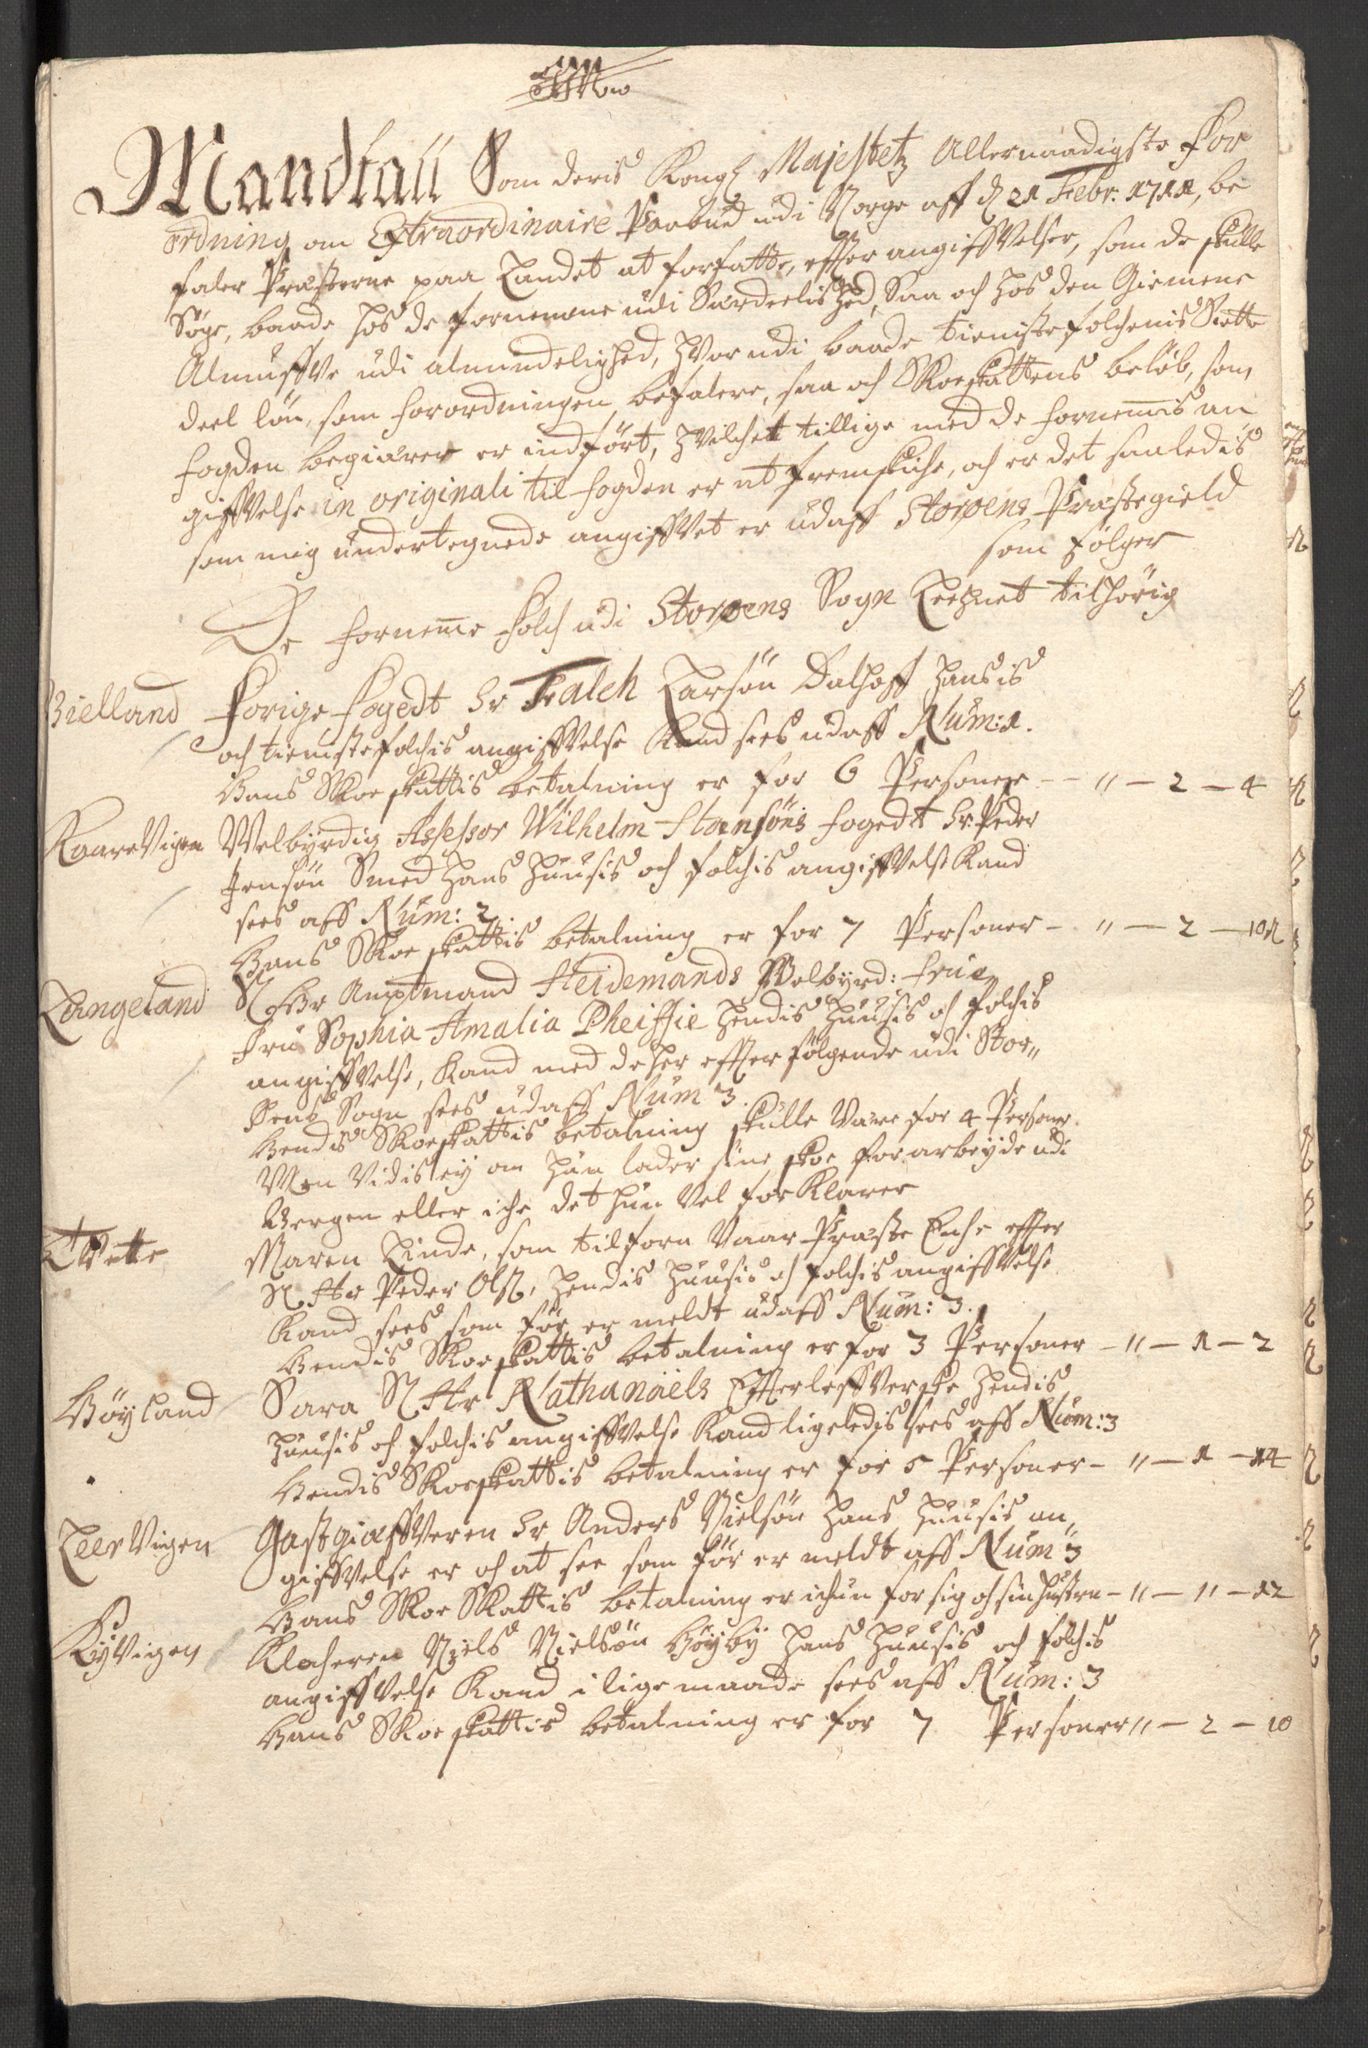 Mandtall Som deris Kongl Majestetz Allernaadigste For
ordning om Extraordinaire Paabud udi Norge aff d 21 Febr. 1711, be
faler Præsterne paa Landet at forfatte, effter angiffVelser, som de skulle
Søge, baade hos de fornemme udi Særdeelished, Saa och hos den Giemene
AlmuffVe udi almindelighed, Hvor udi baade tienistefolchenis Siette
deel løn, som forordningen befalere, saa och Skoeskattens beløb, som
fogden begiærer er indført, hvilchet tillige med de fornemis an
giffVelse in originali til fogden er at fremskiche, och er det saaledis
som mig undertegnede angiffVet er udaff Storøens Præstegield
som følger
De fornemme folch udi Storøens Sogn Leehnet tilhørig
Bielland Forige fogedt Sr Falch Larsøn Dalhoff hansis
och tienistefolchis angiffVelse Kand sees udaff Num: 1.
Hans Skoeskattis betalning er for 6 Personer - - " - 2 - 4
KaareVigen Welbyrdig Assessor Wilhelm Hansøns fogedt Sr Peder
Jensøn Smed hans Huusis och folchis angiffVelse Kand
sees aff Num: 2
Hans Skoe skattis betalning er for 7 Personer - " - 2 - 10
Langeland Sl Hr Amptmand Heidemands Welbyrd: frue
Fru Sophia Amalia Pheiffie hendis Huusis och folchis
angiffVelse, Kand med de her effter følgende udi Stor"
øens Sogn sees udaff Num 3.
Hendis Skoeskattis betalning skulle Være for 4 Personer.
Men Vidis ey om hun lader sine skoe forarbeyde udi
Bergen eller iche det hun Vel forKlarer
Tvette Maren Linde, som tilforn Vaar Præste Enche effter
Sl Hr Peder Ols, hendis Huusis och folchis angiffVelse
Kand sees som før er meldt udaff Num: 3.
Hendis Skoeskattis betalning er for 3 Personer - " - 1 - 2
Høyland Sara Sl Hr Nathanaels EfterleffVerske hendis
Huusis och folchis angiffVelse Kand ligeledis sees aff Num: 3
Hendis Skoeskattis betalning er for 5 Personer - " - 1 - 14
LeerVigen GastgiæffVeren Sr Anders Nielsøn hans Huusis an
giffVelse er och at see som før er meldt aff Num 3
Hans Skoe Skattis betalning er ichun for sig och sin hustru - " - " - 12
KyVigen Klocheren Niels Nielsøn Høyby hans Huusis och folchis
angiffVelse Kand i lige maade sees aff Num: 3
Hans Skoe skattis betalning er for 7 Personer " - 2 - 10